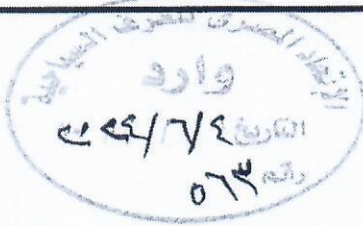 الإتحاد المصرى للغرف السياحية
وارد
التاريخ ٤/٦/
رقم ٥٦٣